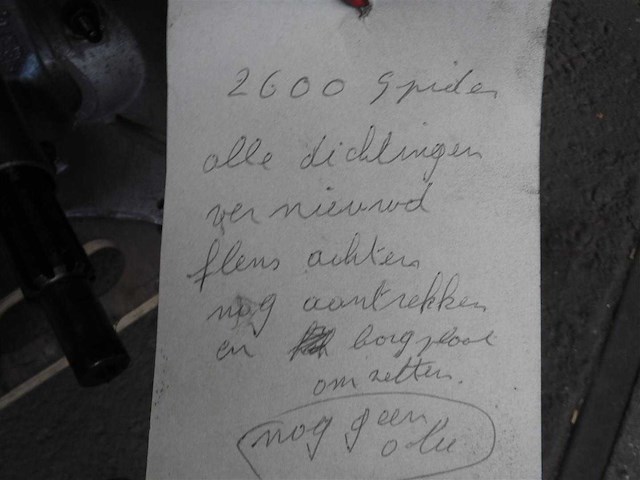 2600 Spider
alle dichtingen
vernieuwd
flens achter
nog aantrekken
en borgplaat
omzetten.
nog geen
olie